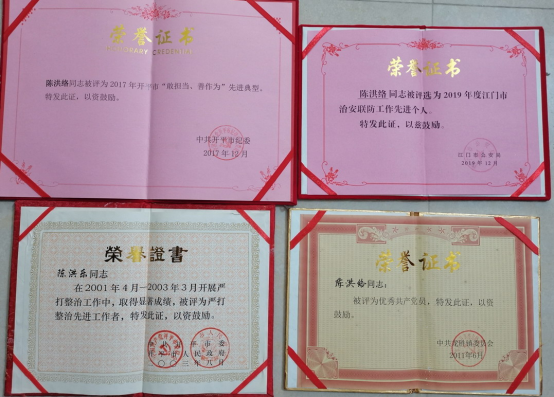 荣誉证书
HONORARY CREDENTIAL
陈洪络同志被评为2017年开平市“敢担当、善作为”先进典型。
特发此证，以资鼓励。
中共开平市纪委
2017年12月
荣誉证书
陈洪络同志被评选为2019年度江门市
治安联防工作先进个人。
特发此证，以兹鼓励。
江门市公安局
2019年12月
荣誉證書
陈洪乐同志
在2001年4月—2003年3月开展严
打整治工作中，取得显著成绩，被评为严打
整治先进工作者，特发此证，以资鼓励。
市委
市人民政府
二〇〇三年八月
荣誉证书
陈洪络同志:
被评为优秀共产党员，特发此证，以资
鼓励。
中共龙胜镇委员会
2011年6月